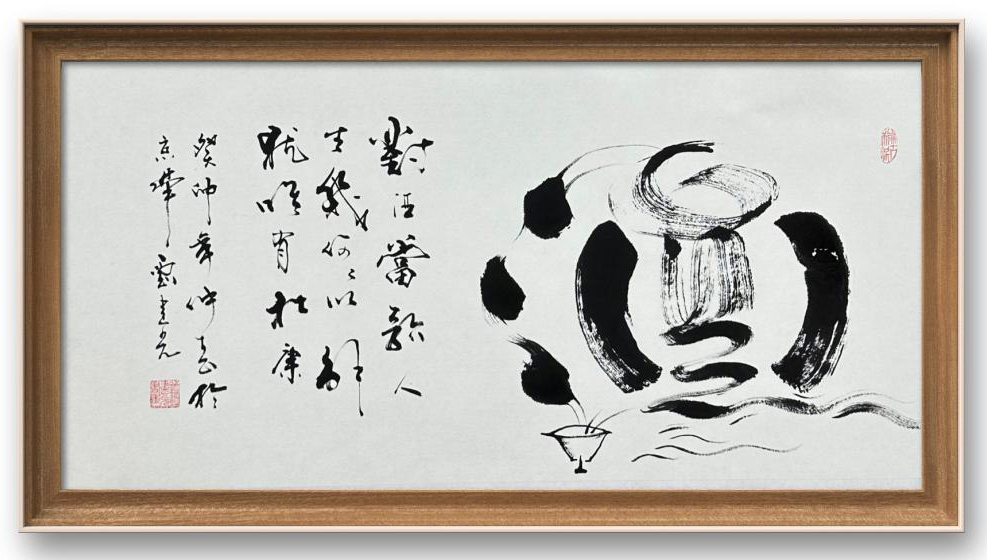 酒
對酒當歌人
生幾何〻以解
忧唯有杜康
癸卯年仲春於
京華
建光